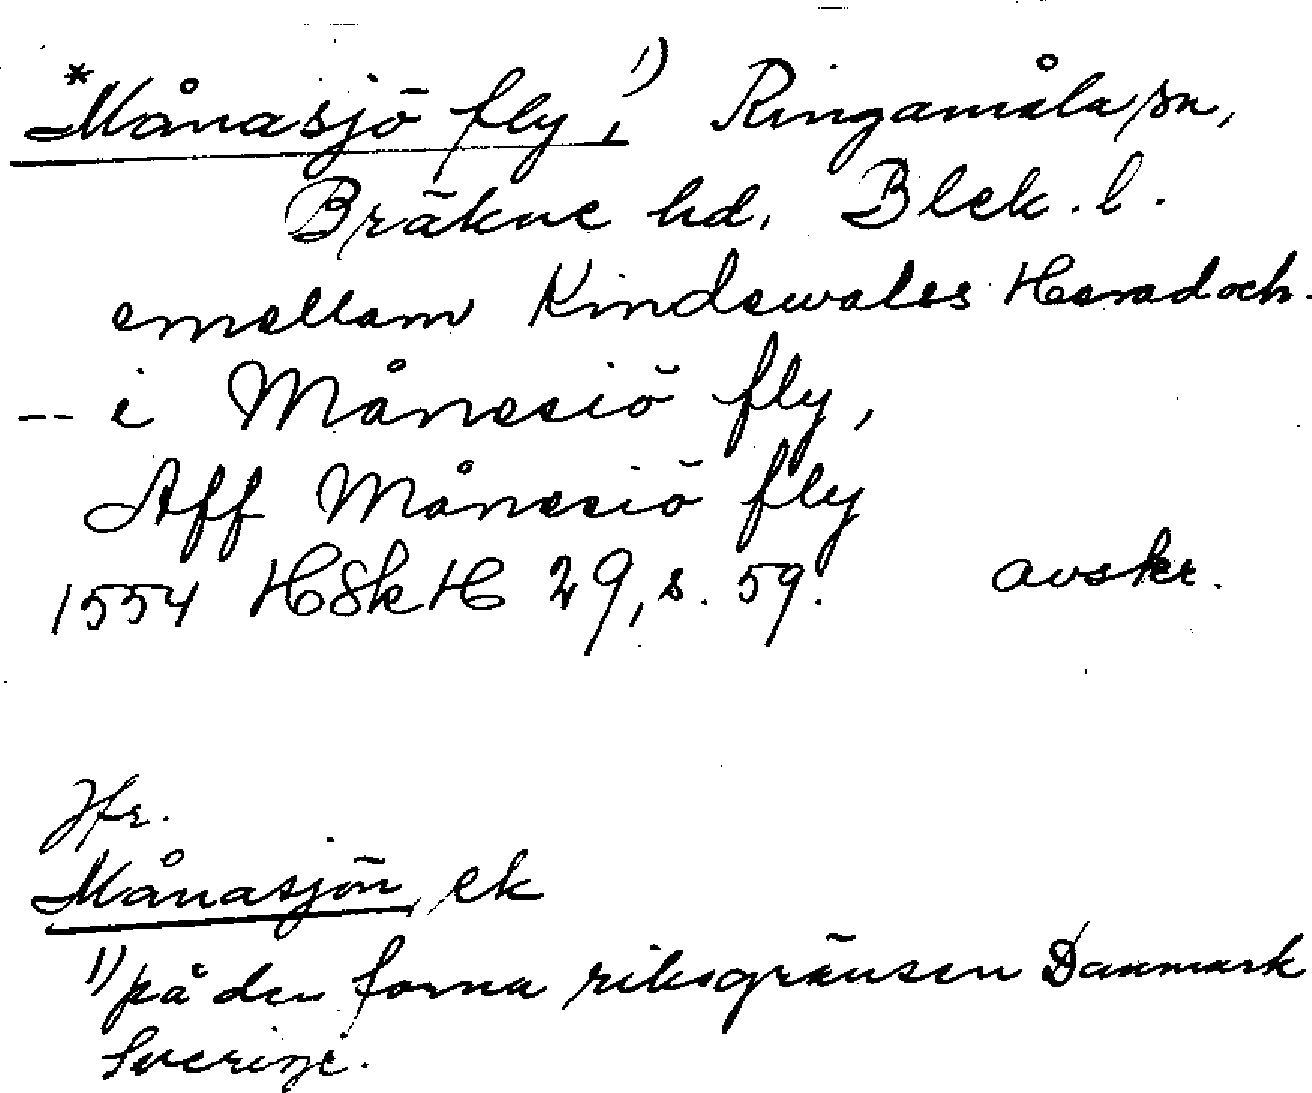 *Månasjö fly,¹⁾ Ringamåla sn,
Bräkne hd, Blek. l.
emellam Kindewales Herad och
-- i Månesiö fly,
Aff Månesiö fly
1554 HSkH 29, s. 59. avskr.
Jfr.
Månasjön, ek
¹⁾ på den forna riksgränsen Danmark
Sverige.